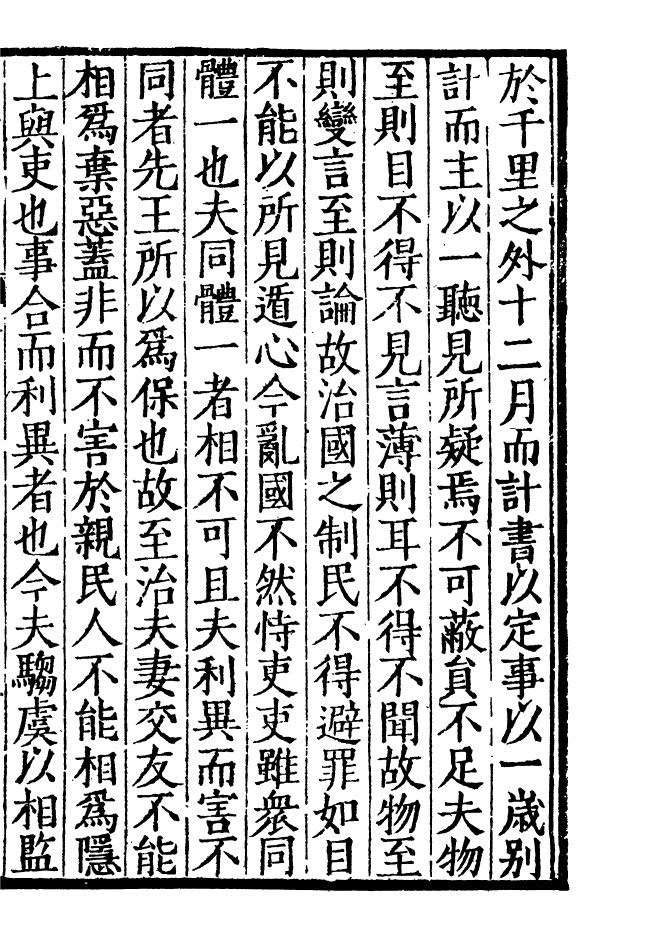 於千里之外十二月而計書以定事以一歲别
計而主以一聽見所疑焉不可蔽負不足夫物
至則目不得不見言薄則耳不得不聞故物至
則變言至則論故治國之制民不得避罪如目
不能以所見遁心今亂國不然恃吏吏雖衆同
體一也夫同體一者相不可且夫利異而害不
同者先王所以爲保也故至治夫妻交友不能
相爲棄惡蓋非而不害於親民人不能相爲隱
上與吏也事合而利異者也今夫騶虞以相監